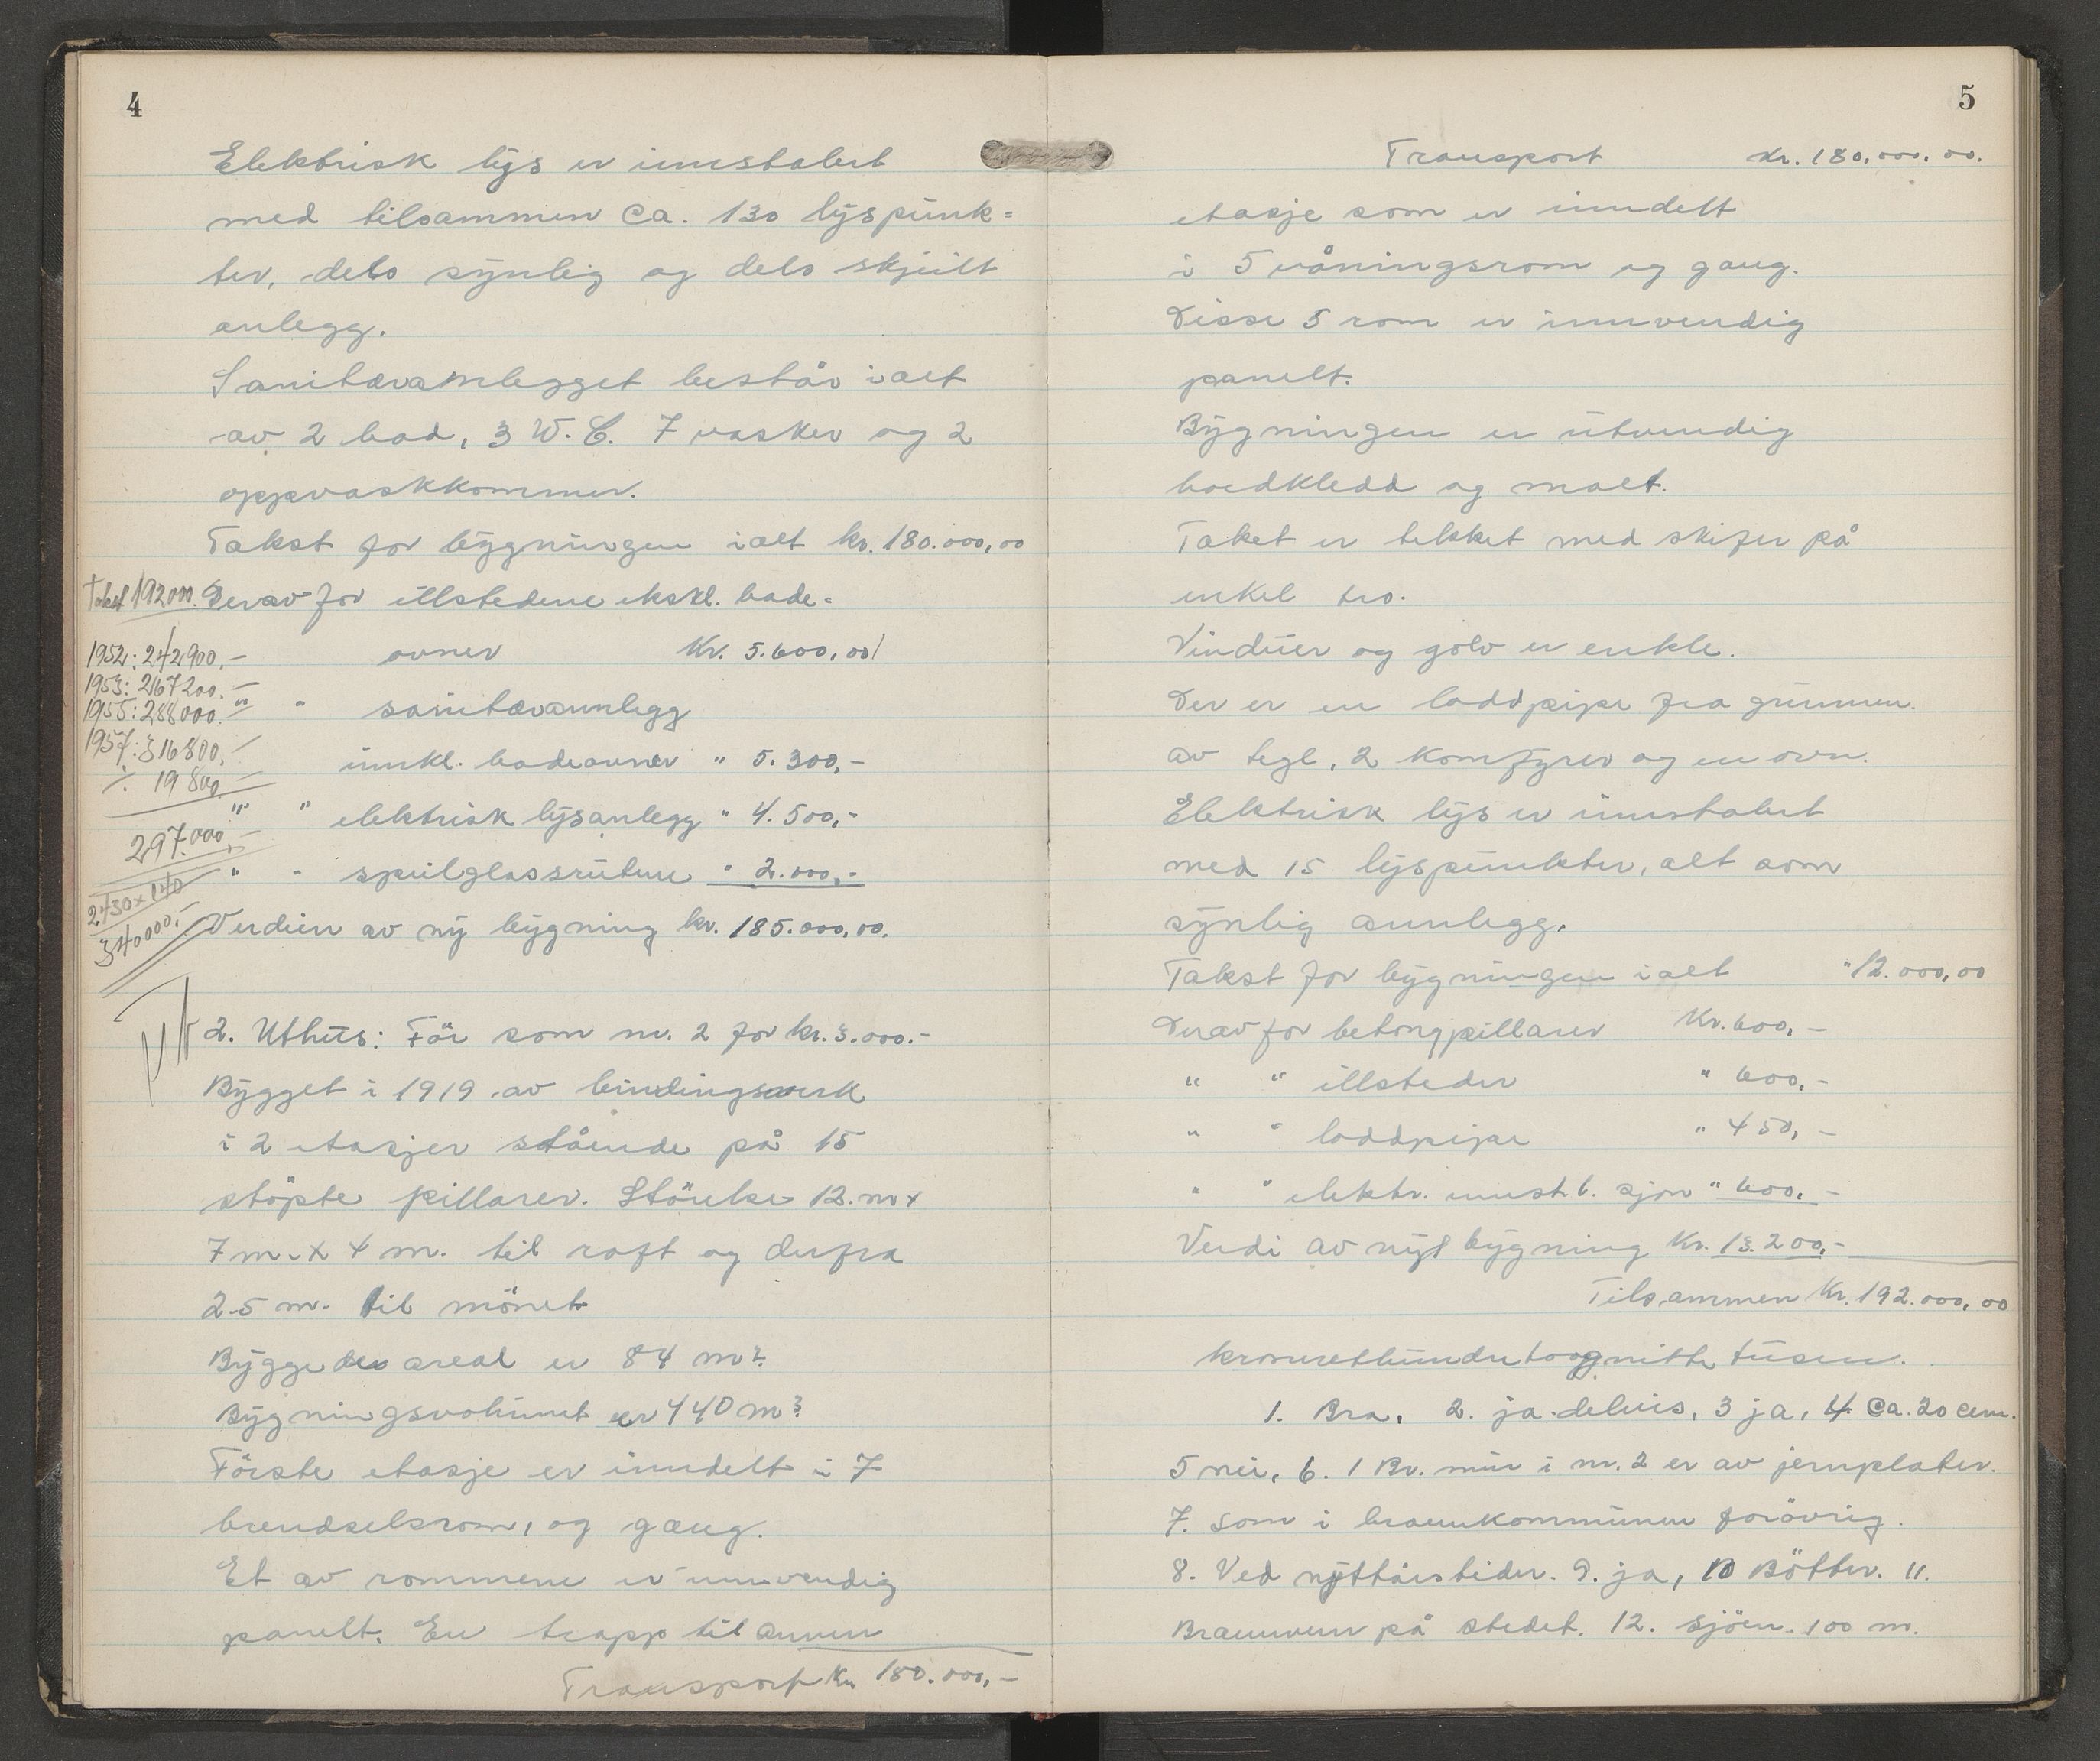 4
Elektrisk lys er innstalert
med tilsammen ca. 130 lyspunk=
ter, dels synlig og dels skjult
anlegg.
Sanitæranlegget består i alt
av 2 bad, 3 W.C. 7 vasker og 2
oppvaskkommer.
Takst for bygningen ialt kr. 180.000,00
Takst 192000. Derav for illstedene ekskl. bade-
1952: 242900,- ovner Kr. 5.600,00
1953: 267200.-
1955: 288000.- " " sanitæranlegg
1957: 316800,- innkl. badeovner " 5.300,-
÷ 19800 -
" " elektrisk lysanlegg " 4.500,-
297.000,-
" " speilglassrutene " 2.000,-
2430x140
340000,- Verdien av ny bygning kr. 185.000,00.
2. Uthus: Før som nr. 2 for kr. 3.000.-
Bygget i 1919 av bindingsverk
i 2 etasjer stående på 15
støpte pillarer. Størelse 12.m x
7 m. x 4 m. til raft og derfra
2.5 m. til mønet
Byggedes areal er 84 m².
Bygningsvolumet er 440 m³.
Første etasje er inndelt i 7
brendselsrom, og gang.
Et av rommene er innvendig
panelt. En trapp til annen
Transport Kr. 180.000,-
5
Transport Kr. 180.000,00.
etasje som er inndelt
i 5 våningsrom og gang.
Disse 5 rom er innvendig
panelt.
Bygningen er utvendig
bordkledd og malt.
Taket er tekket med skifer på
enkel tro.
Vinduer og golv er enkle.
Der er en loddpipe fra grunnen.
av tegl, 2 komfyrer og en ovn.
Elektrisk lys er innstalert
med 15 lyspunkter, alt som
synlig annlegg.
Takst for bygningen i alt " 12.000,00
Derav for betongpillarer Kr. 600,-
" " illsteder " 600,-
" " loddpipe " 450,-
" " elektr. innstl. sjon " 600,-
Verdi av nyt bygning Kr. 13.200,-
Tilsammen Kr. 192.000,00
kroneretthundretoognitti tusen.
1. Bra, 2. ja delvis, 3 ja, 4 ca. 20 cem.
5 nei, 6. 1 Br. mur i nr. 2 er av jernplater.
7. som i brannkommunen forøvrig.
8. Ved nyttårstider. 9. ja, 10 Bøtter. 11.
Brannvern på stedet. 12. sjøen. 100 m.